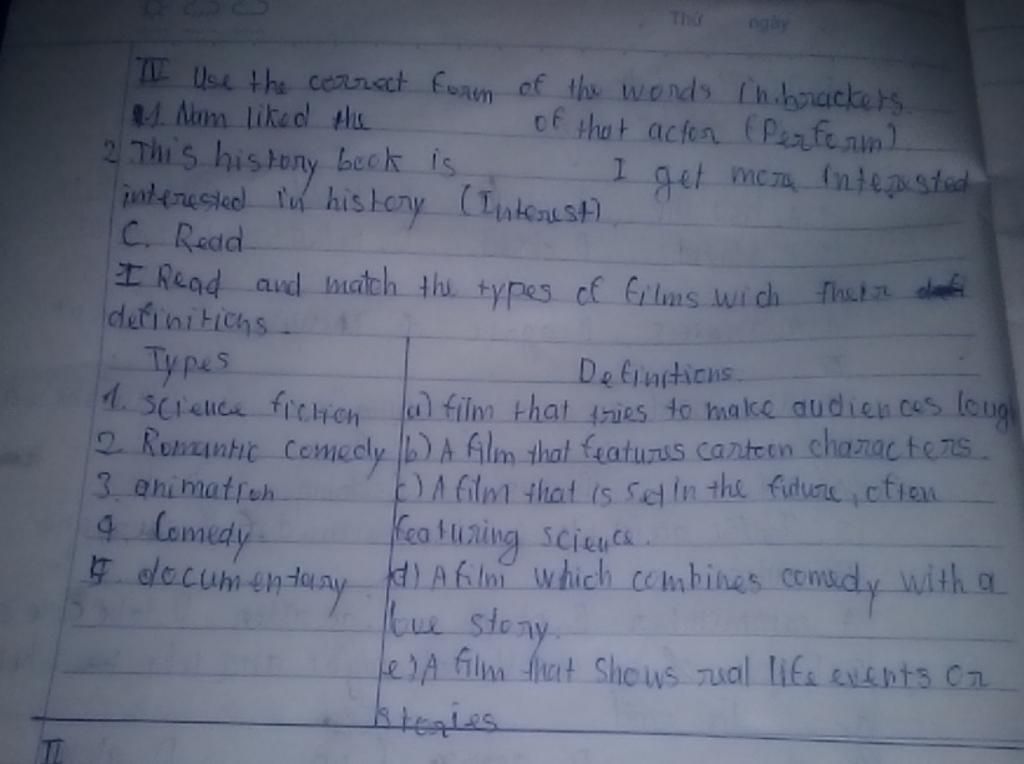 Thứ ngày
IV Use the correct form of the words in brackers.
1. Nam liked the of that actor (Perform)
2 This history book is I get more interested
interested in history (Interest)
C. Read
I Read and match the types of films wich their
definitions.
Types Definitions
1. science fiction a) film that tries to make audiences loug
2 Romantic comedy b) A film that features cartoon characters.
3. animation c) A film that is set in the future, often
4 Comedy featuring science.
5 documentary d) A film which combines comedy with a
love story.
e) A film that shows real life events or
stories
II